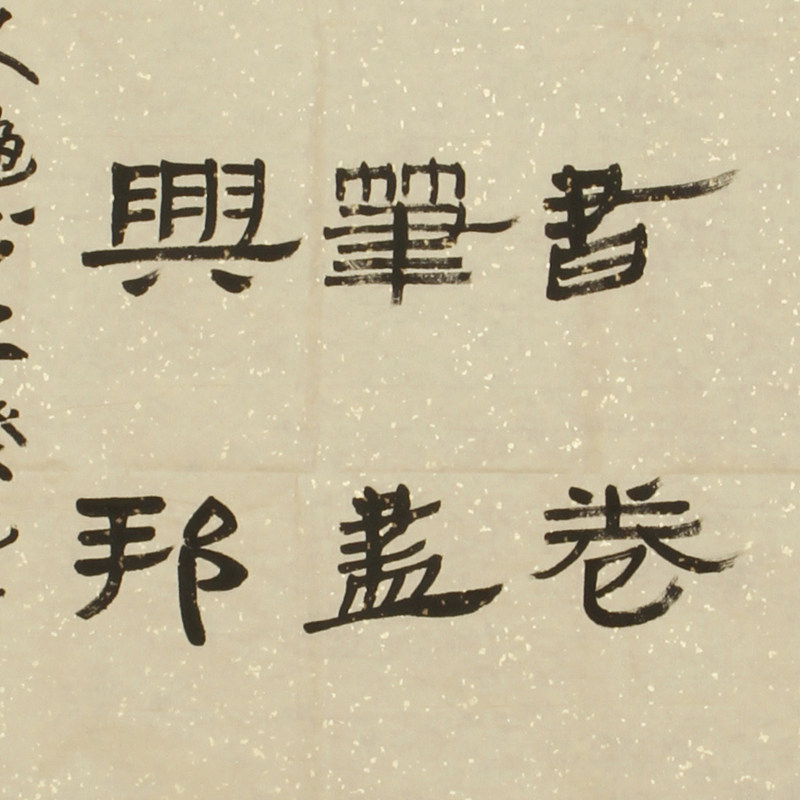 書卷
筆盡
興邦